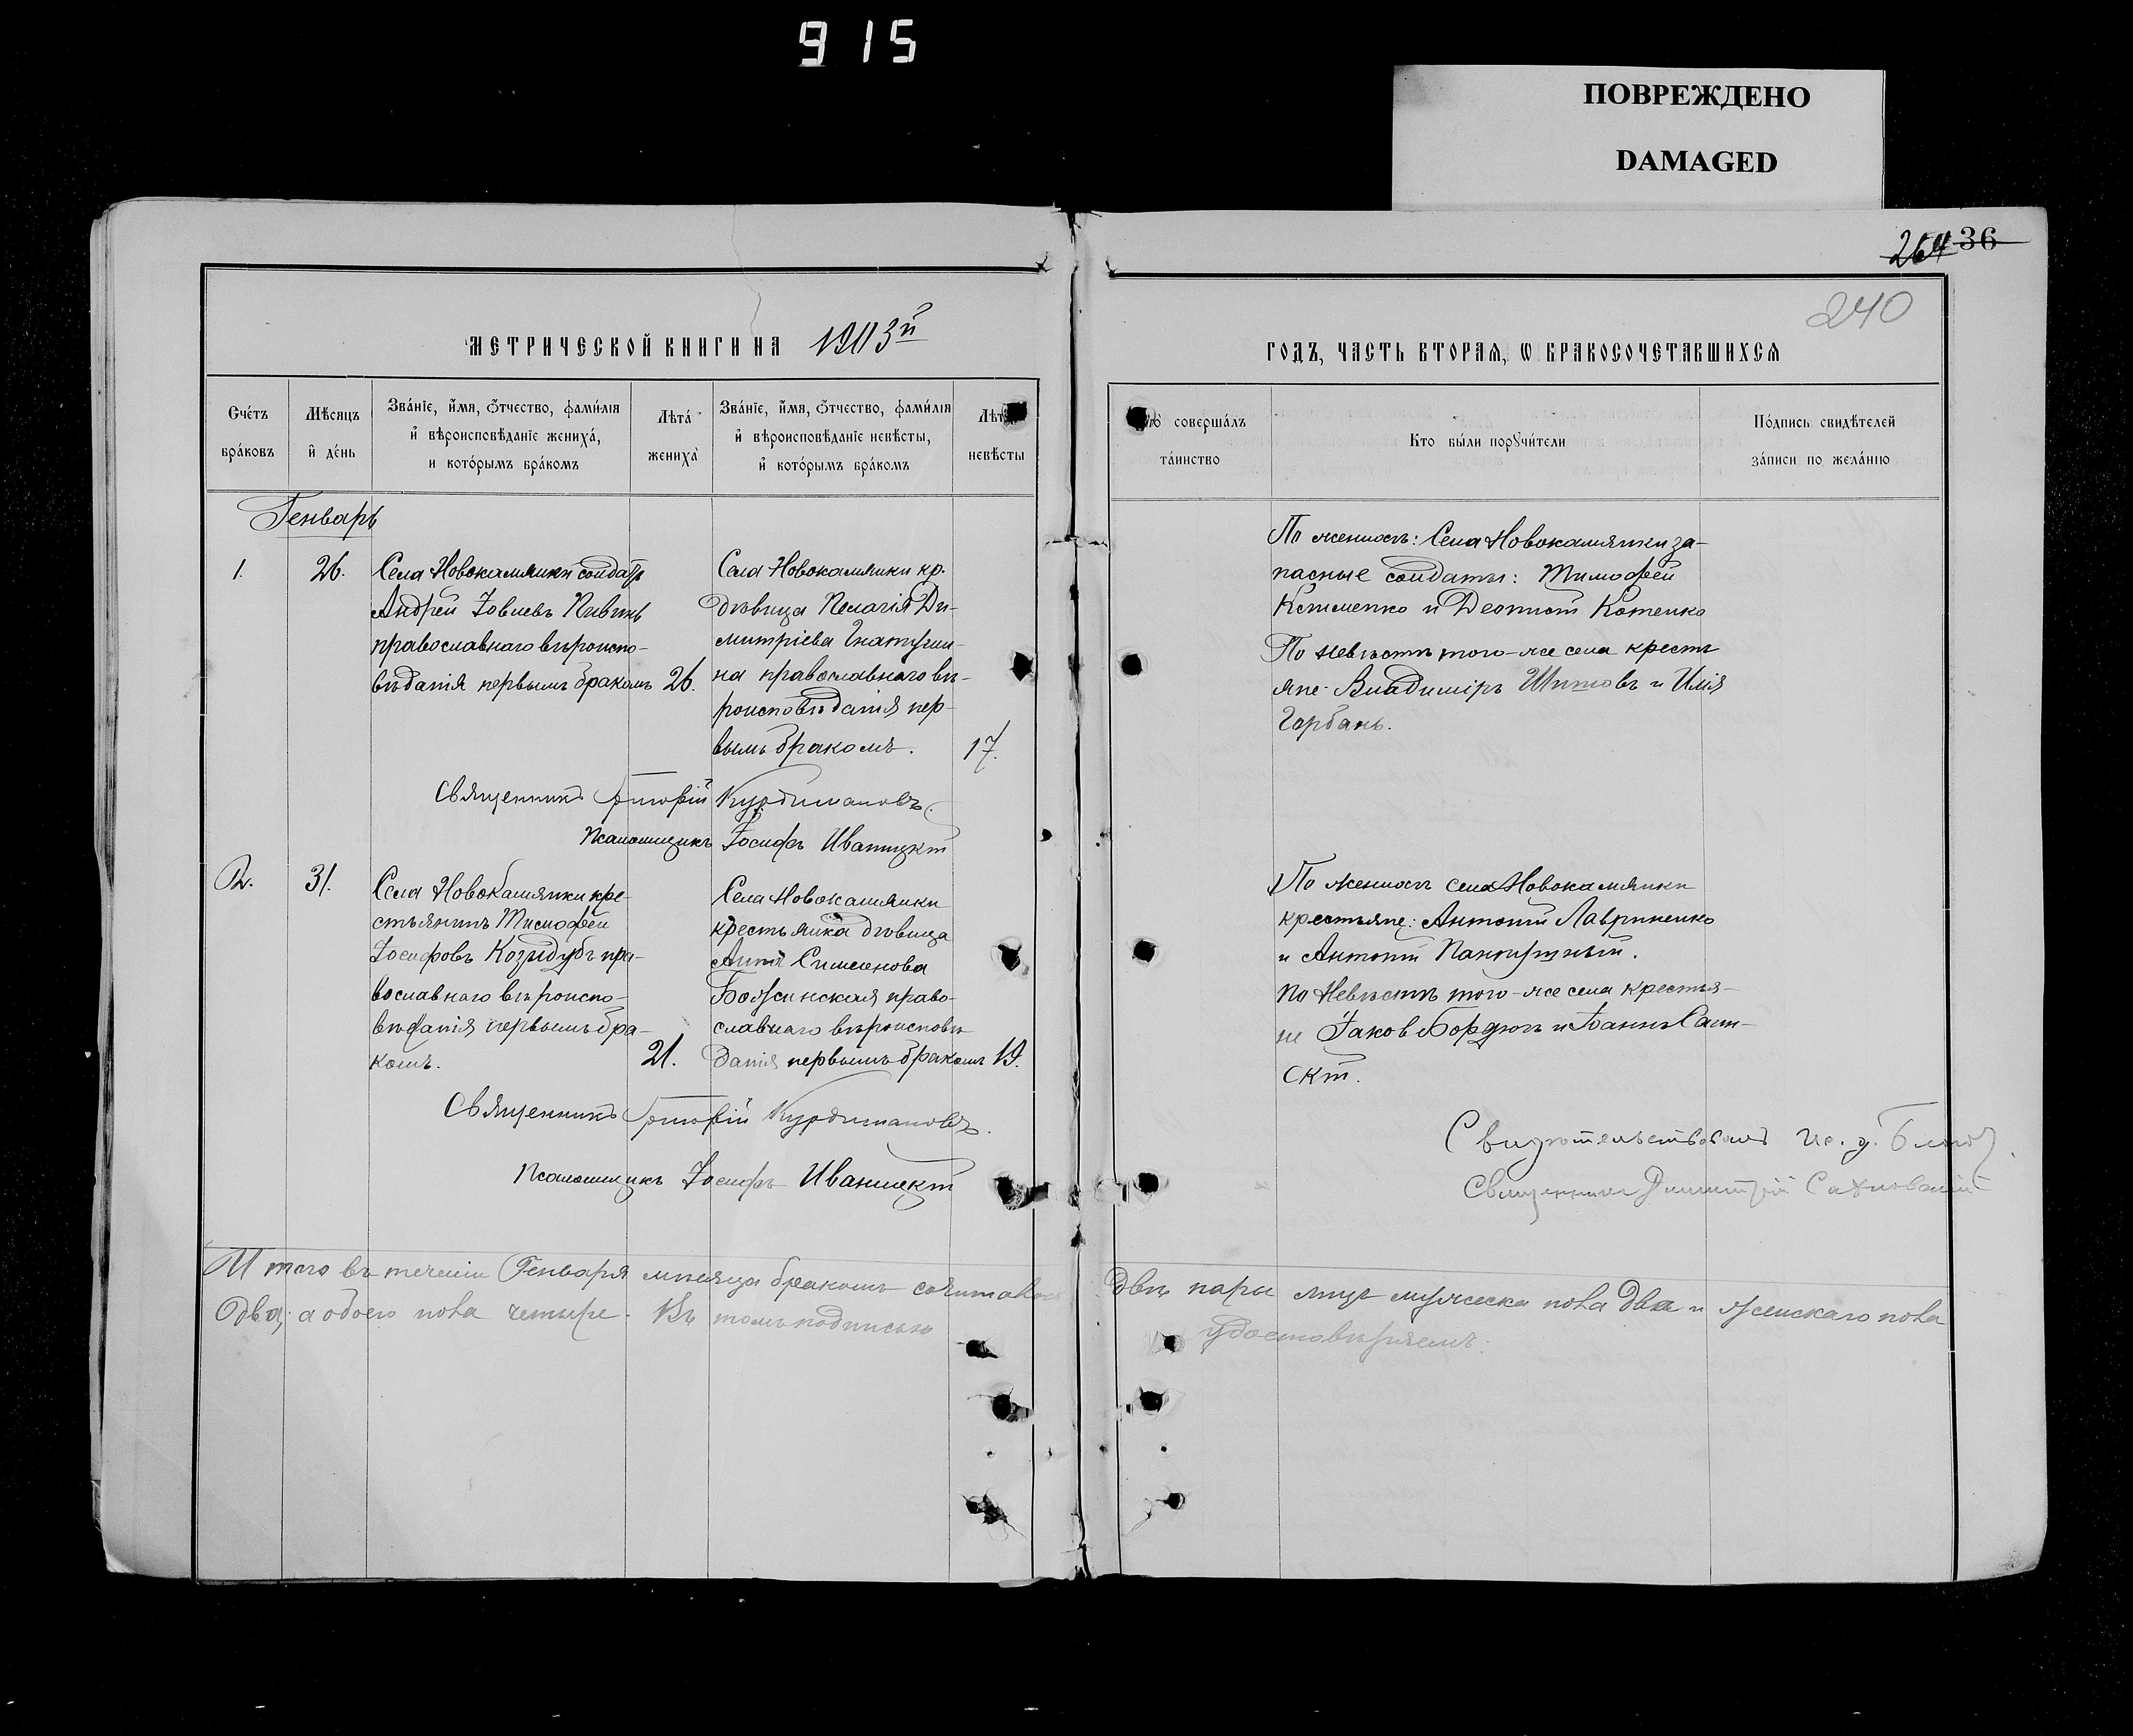 915
ПОВРЕЖДЕНО
DAMAGED
264 36
240
МЕТРИЧЕСКОЙ КНИГИ НА 1903й
ГОДЪ, ЧАСТЬ ВТОРАЯ, Ѡ БРАКОСОЧЕТАВШИХСЯ
Счéтъ брáковъ
Мѣсяцъ и дéнь
Звáнїе, и́мя, ѻ́тчество, фами́лїя и҆ вѣроисповѣ́данїе женихá, и кото́рымъ брáкомъ
Лѣтá женихá
Звáнїе, и́мя, ѻ́тчество, фами́лїя и҆ вѣроисповѣ́данїе невѣ́сты, и҆ кото́рымъ брáкомъ
невѣ́сты
совершáлъ тáинство
Кто бы́ли порꙋчи́тели
По́дпись свидѣ́телей зáписи по желáнїю
Генварь
1.
26.
Села Новокамянки солдатъ
Андрей Іовлевъ
православнаго вѣроиспо-
вѣданія первымъ бракомъ
26.
Села Новокамянки кр.
дѣвица Пелагія Ди-
митріева
на православнаго вѣ-
роисповѣданія пер-
вымъ бракомъ.
17.
По женихѣ: Села Новокамянки за-
пасные солдаты: Тимофей
и Котенко
По невѣстѣ того-же села кресть
яне: Владиміръ Шитовъ и Илія
Горбань.
Священникъ Григорій Курдимановъ.
Псаломщикъ Іосифъ Иваницкій
2.
31.
Села Новокамянки кре-
стьянинъ Тимофей
Іосифовъ Козидубъ пра-
вославнаго вѣроиспо-
вѣданія первымъ бра-
комъ.
21.
Села Новокамянки
крестьянка дѣвица
Анна Симеонова
право-
славнаго вѣроисповѣ
данія первымъ бракомъ
19.
По женихѣ села Новокамянки
крестьяне: Антоній Лавриненко
и Антоній
По невѣстѣ того-же села крестья-
не Іаковъ и Іоаннъ
скій.
Священникъ Григорій Курдимановъ.
Псаломщикъ Іосифъ Иваницкій
Свидѣтельствовалъ И. д. Благоч.
Священникъ Димитрій Сахновскій
Итого въ теченіи Генваря мѣсяца бракомъ сочиталось двѣ пары лицъ мужеска пола два и женскаго пола
два; а обоего пола четыре. Въ томъ подписью удостовѣряемъ.